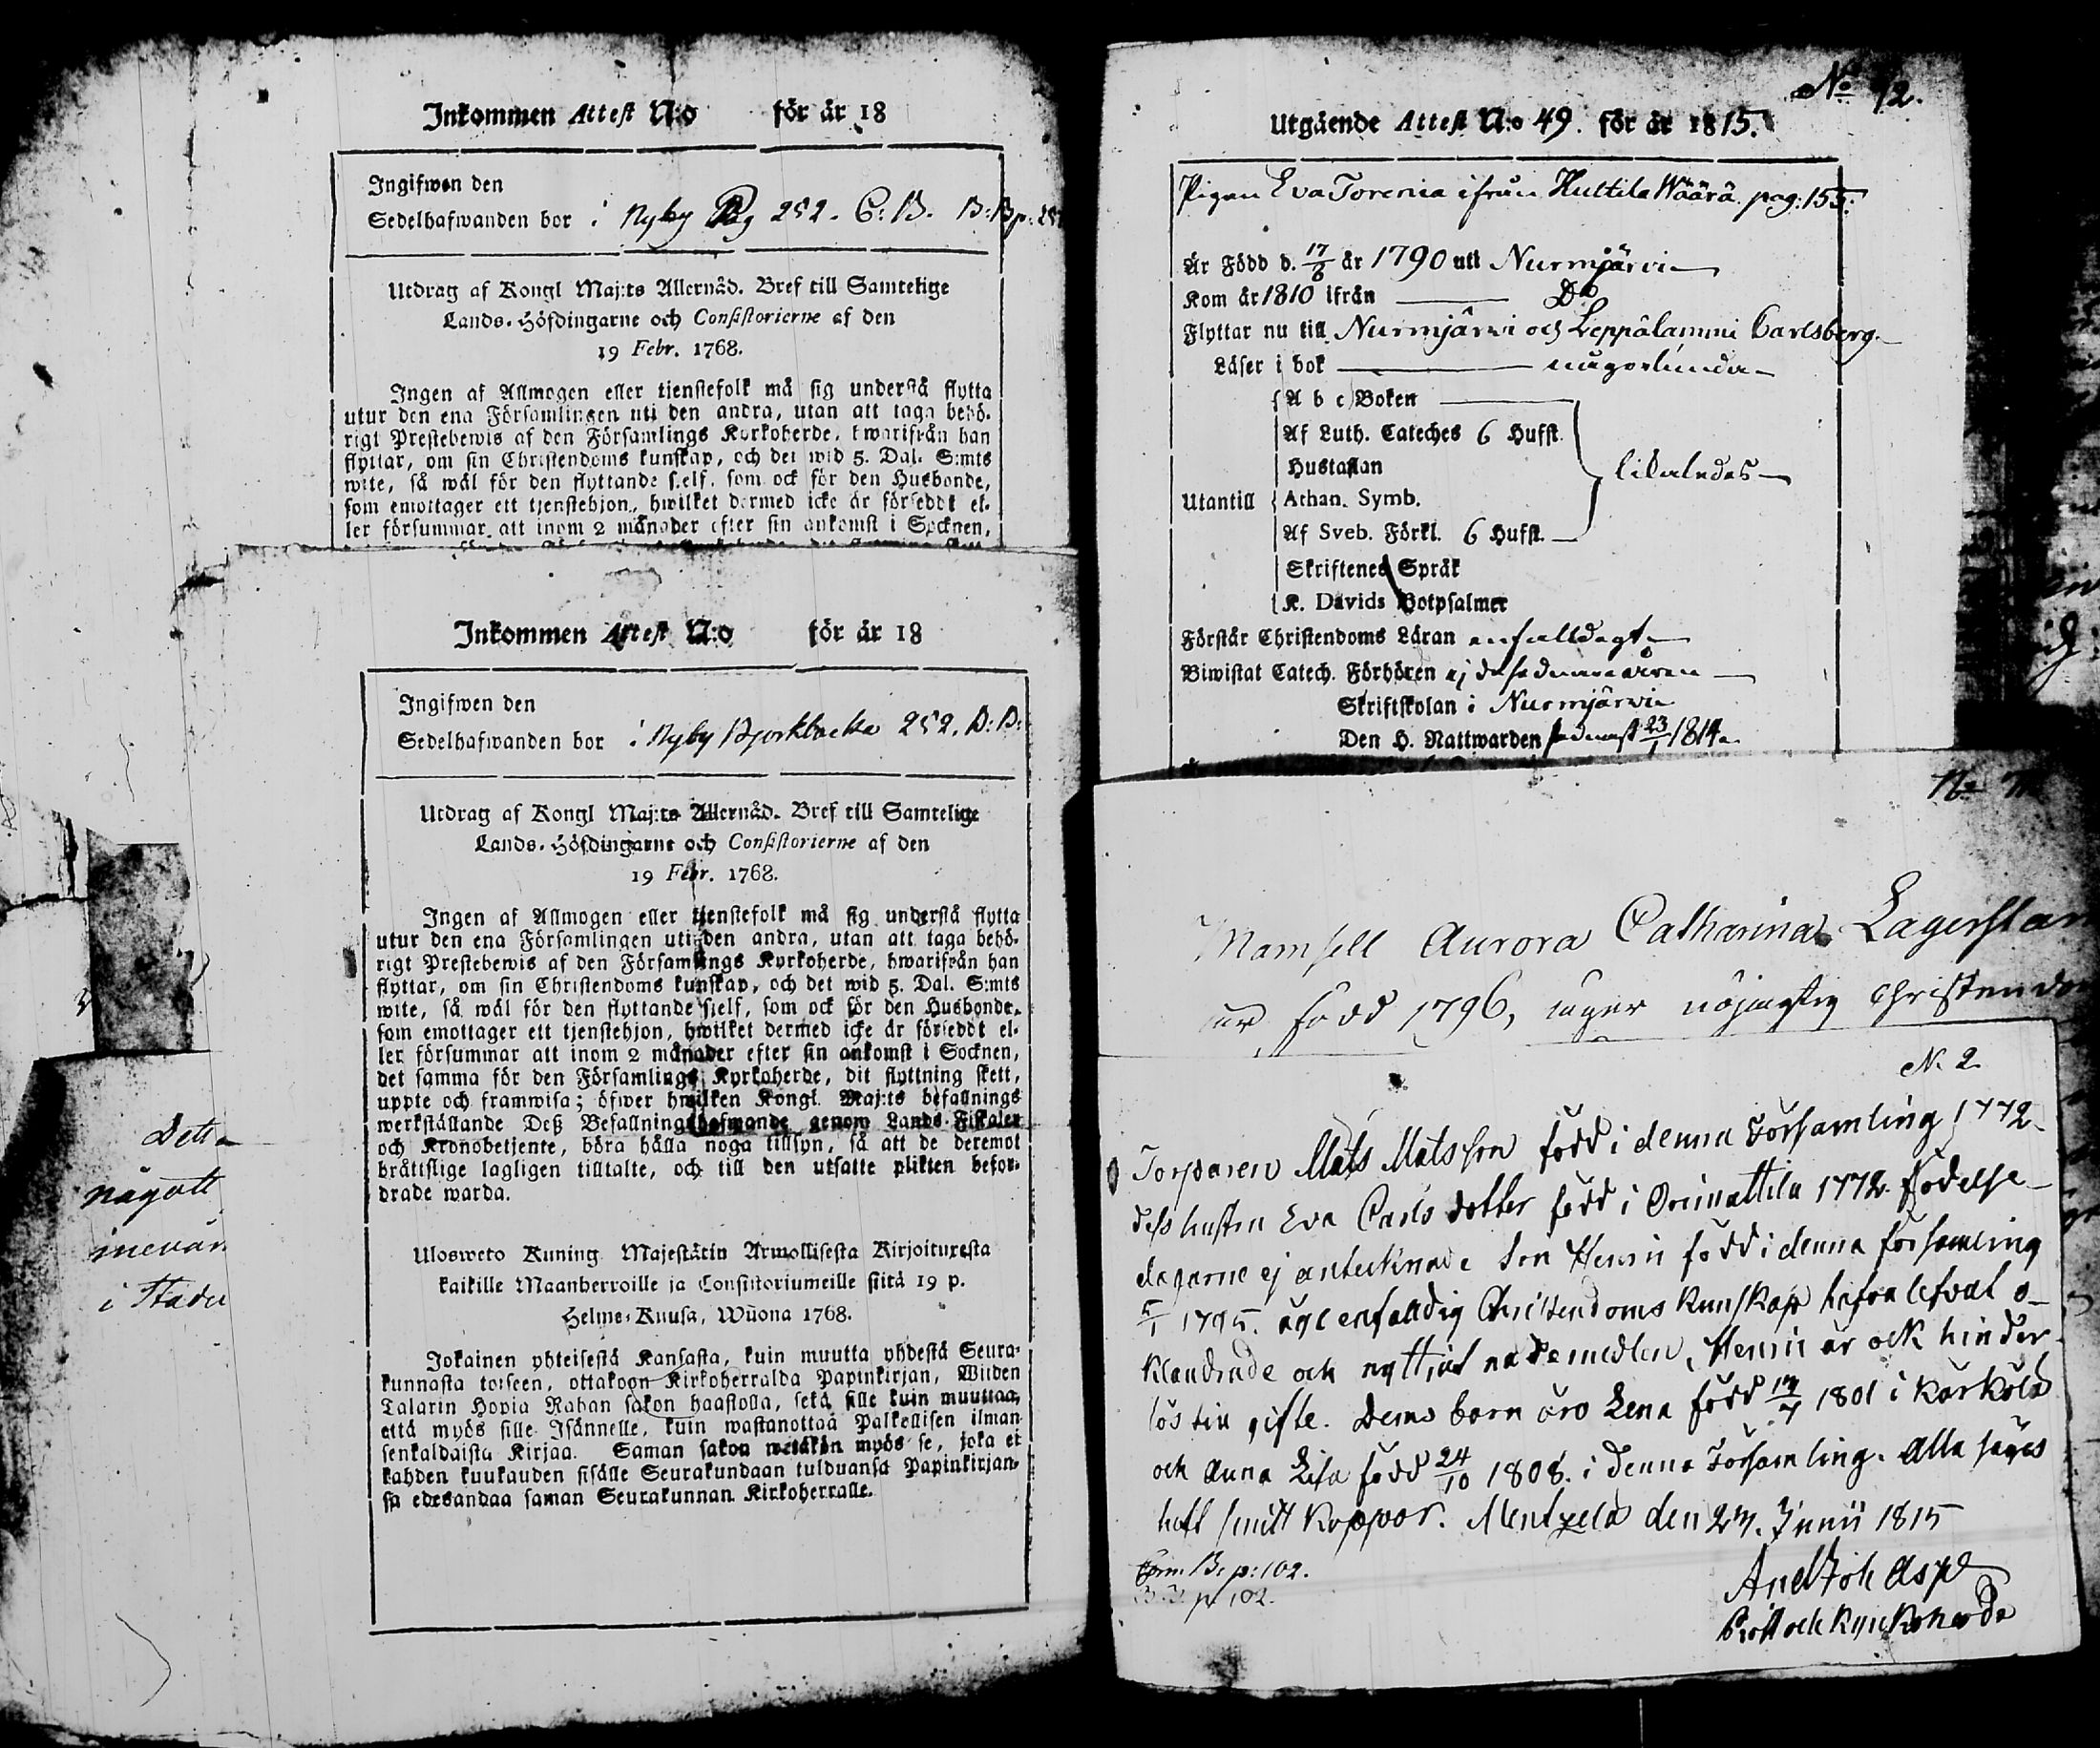 Inkommen Attest N:o för år 18
Ingifwen den
Sedelhafwanden bor i Nyby Pag 252. C:B. B:B p: 252
Utdrag af Kongl Maj:ts Allernåd. Bref till Samtelige
Lands-Höfdingarne och Consistorierne af den
19 Febr. 1768.
Ingen af Allmogen eller tienstefolk må sig understå flytta
utur den ena Församlingen uti den andra, utan att taga behö-
rigt Prestebewis af den Församlings Kyrkoherde, hwarifrån han
flyttar, om sin Christendoms kunskap, och det wid 5. Dal. S:mts
wite, så wäl för den flyttande sielf, som ock för den Husbonde,
som emottager ett tjenstehjon, hwilket dermed icke är förseddt el-
ler försummar att inom 2 månader efter sin ankomst i Socknen,
Inkommen Attest N:o för år 18
Ingifwen den
Sedelhafwanden bor i Nyby Bjorkbacka 252. B:B:
Utdrag af Kongl Maj:ts Allernåd. Bref till Samtelige
Lands-Höfdingarne och Consistorierne af den
19 Febr. 1768.
Ingen af Allmogen eller tienstefolk må sig understå flytta
utur den ena Församlingen uti den andra, utan att taga behö-
rigt Prestebewis af den Församlings Kyrkoherde, hwarifrån han
flyttar, om sin Christendoms kunskap, och det wid 5. Dal. S:mts
wite, så wäl för den flyttande sielf, som ock för den Husbonde,
som emottager ett tjenstehjon, hwilket dermed icke är förseddt el-
ler försummar att inom 2 månader efter sin ankomst i Socknen,
det samma för den Församlings Kyrkoherde, dit flyttning skett,
uppte och framwisa; öfwer hwilken Kongl. Maj:ts befallnings
werkställande Deß Befallningshafwande genom Lands-Fiskaler
och Kronobetjente, böra hålla noga tillsyn, så att de deremot
bråttslige lagligen tilltalte, och till den utsatte plikten befor-
drade warda.
Ulosweto Kuning Majestätin Armollisesta Kirjoituxesta
kaikille Maanherroille ja Consistoriumeille siitä 19 p.
Helme-Kuusa, Wuona 1768.
Jokainen yhteisestä Kansasta, kuin muutta yhdestä Seura-
kunnasta toiseen, ottakoon Kirkoherralda Papinkirjan, Wiiden
Talarin Hopia Rahan sakon haastolla, sekä sille kuin muuttaa,
että myös sille Isännelle, kuin wastanottaa Palkollisen ilman
senkaldaista Kirjaa. Saman sakon wetäkön myös se, joka ei
kahden kuukauden sisälle Seurakundaan tulduansa Papinkirjan-
sa edesandaa saman Seurakunnan Kirkoherralle.
Detta
något
inevån
i Stade
No 92.
Utgående Attest N:o 49. för år 1815.
Pigan Eva Torenia ifrån Huttila Wäärä pag: 155.
Är Född d. 17/6 år 1790 uti Nurmijärvi
Kom år 1810 ifrån Do
Flyttar nu till Nurmjärwi och Leppälammi Carlsberg.
Läser i bok någorlunda
A b c Boken
Af Luth. Cateches 6 Hufst.
Hustaflan
likaledes
Utantill Athan. Symb.
Af Sveb. Förkl. 6 Hufst.
Skriftenes Språk
K. Davids Botpsalmer
Förstår Christendoms Läran enfalldigt
Biwistat Catech. Förhören ej de sednare åren
Skriftskolan i Nurmjärwi
Den H. Nattwarden sednast 23/1 1814.
No
Mamsell Aurora Catharina Lagerstam
är född 1796, äger nöjagtig Christendom
N. 2.
Torparen Mats Matsson född i denna Församling 1772.
dess hustru Eva Carls dotter född i Orimattila 1772. Födelse-
dagarne ej antecknade Son Henric född i denna församling
5/1 1795. äge enfaldig Christendoms Kunskap hafva lefvat o-
klandrade och nyttjat nådemedlen, Henric är ock hinder-
lös till gifte. Deras barn äro Lena född 17/7 1801 i Kärkölä
och Anna Lisa född 24/10 1808. i denna Församling. Alla sägas
haft smitt Koppor. Mentzelä den 27. Junii 1815
And Joh Aspe
Prost och Kyrkoherde
Com. B. p: 102.
B:B: p 102.